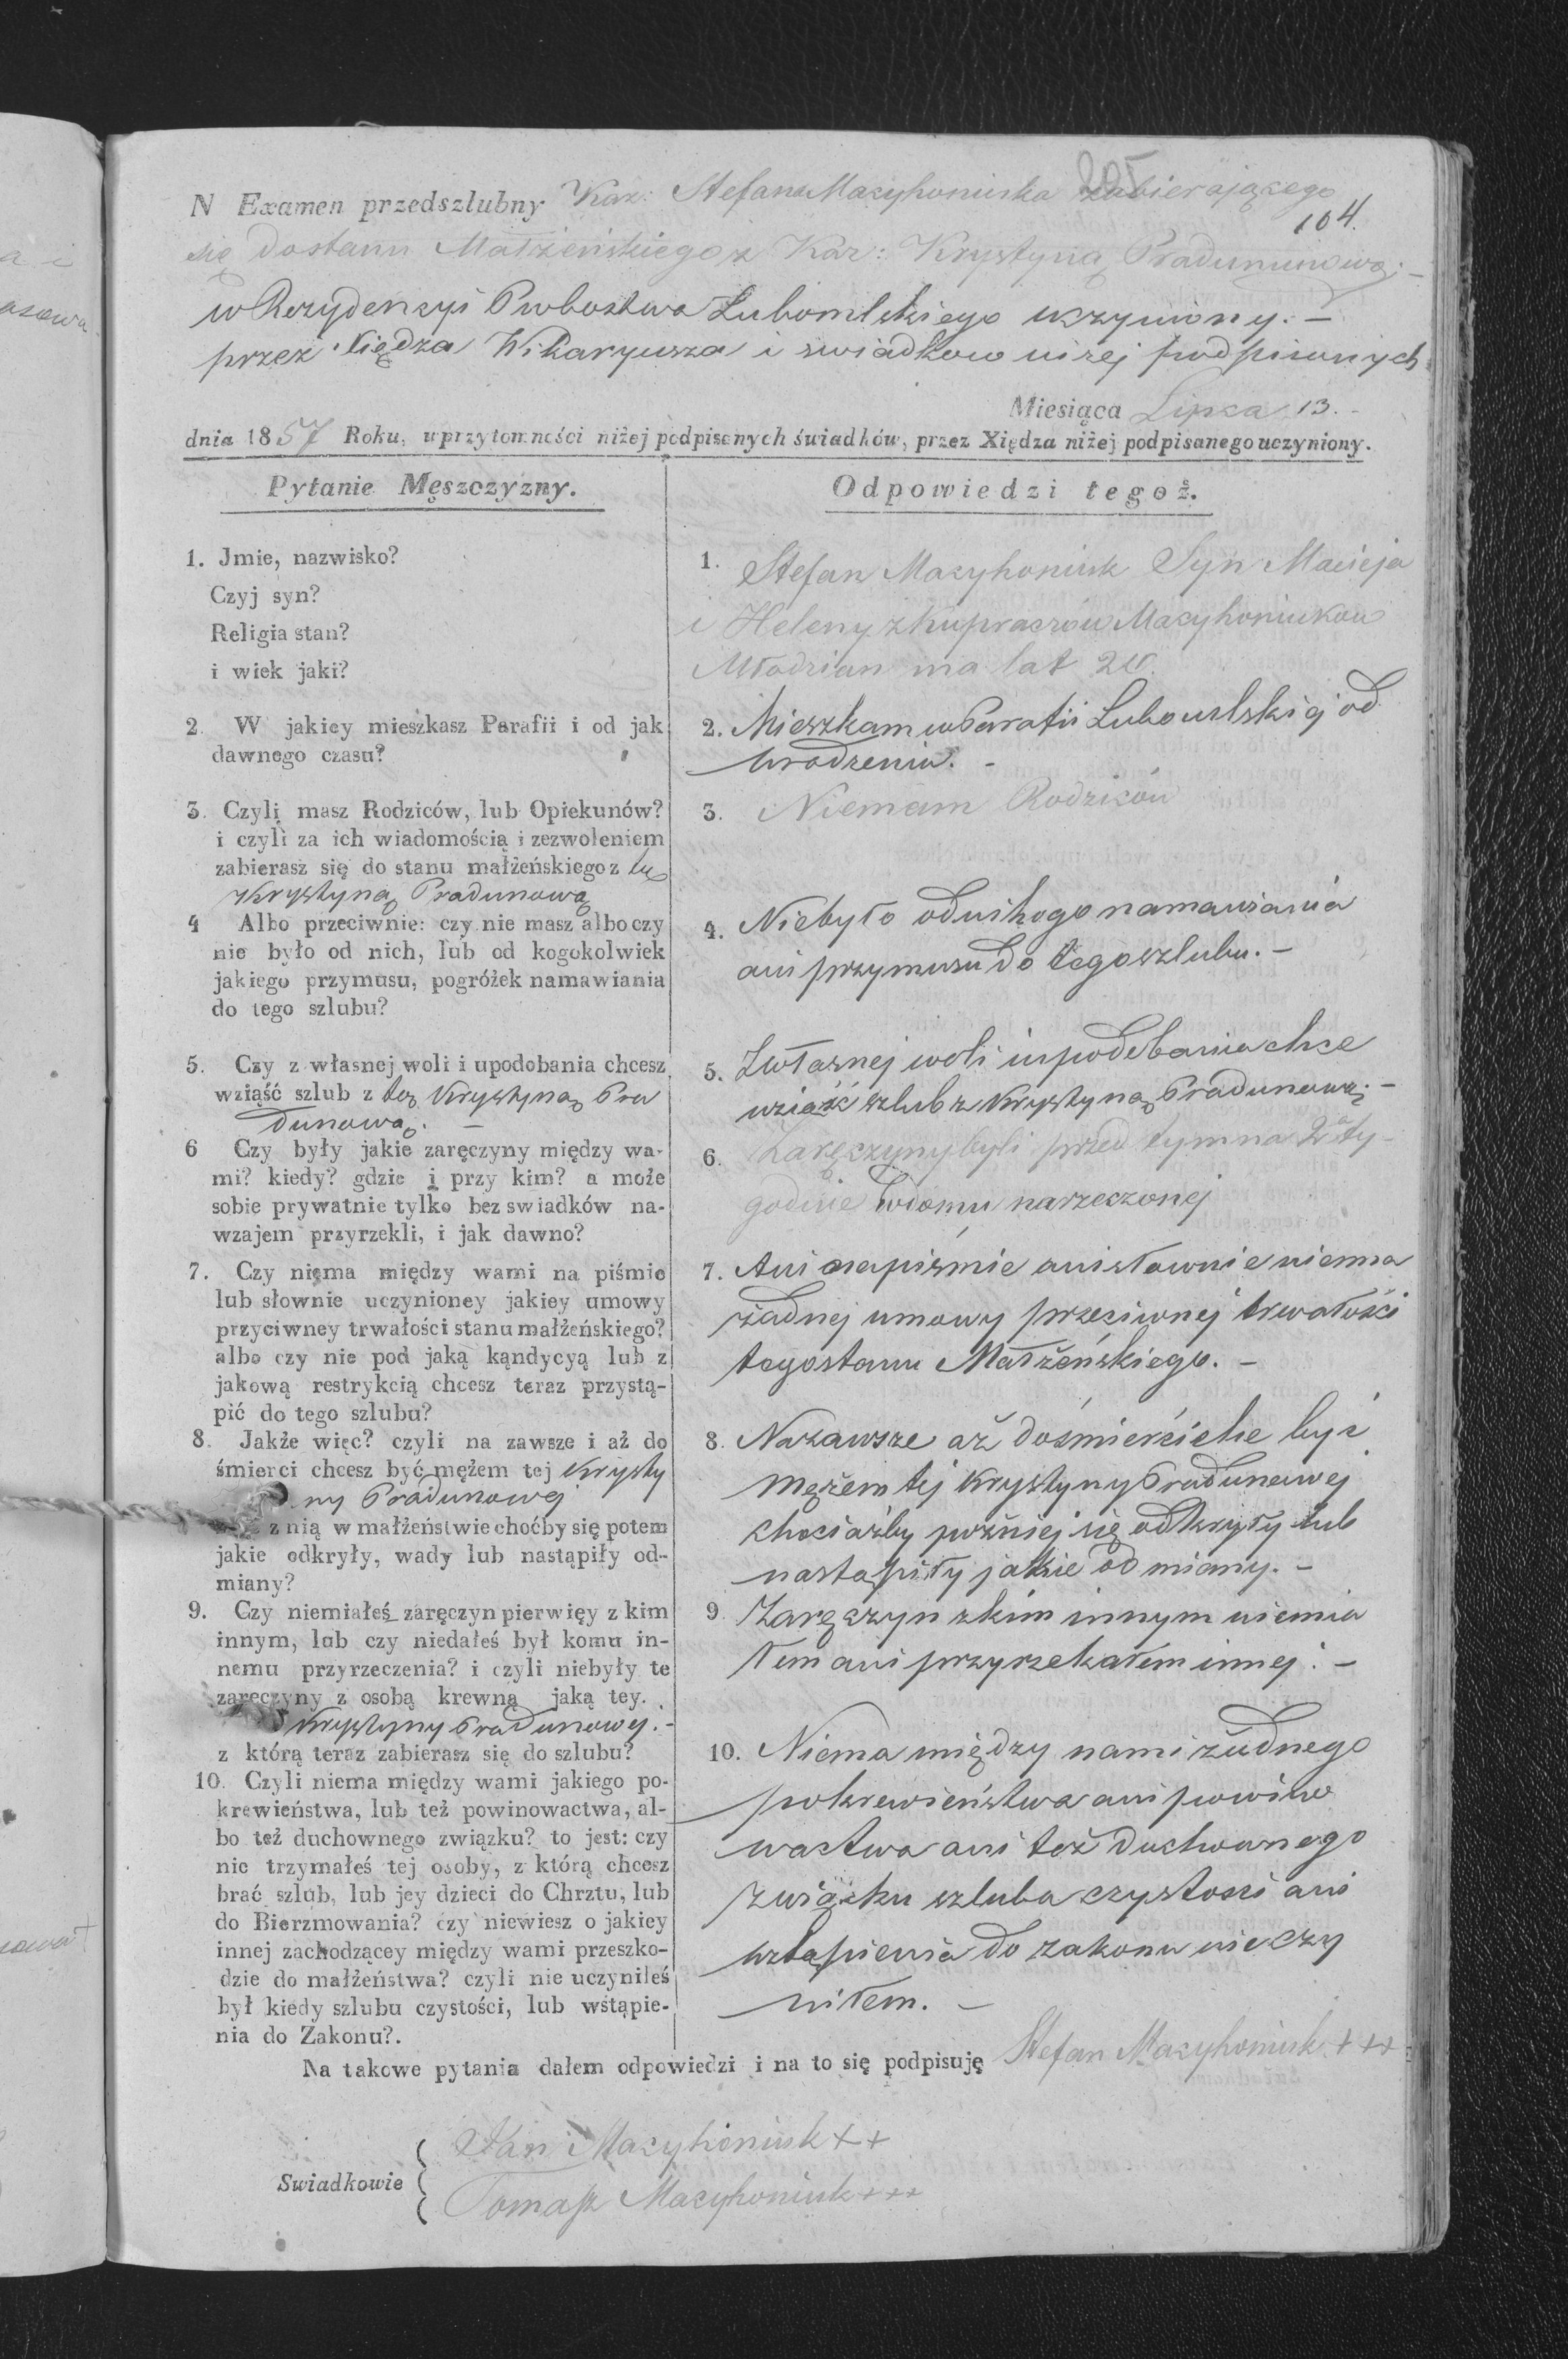 205
N Examen przedszlubny Kaz: Stefana Macyhoniuka zabierającego
104.
się dostanu Małżeńskiego z Kar: Krystyną Praduniunową. –
w Rezydencyi Probostwa Lubomlskiego uczyniony. –
przez Xiędza Wikaryusza i swiadkow niżej podpisanych
Miesiąca Lipca 13. -
dnia 1857 Roku, w przytomności niżej podpisanych świadków, przez Xiędza niżej podpisanego uczyniony.
Pytanie Męszczyzny.
1. Jmie, nazwisko?
Czyj syn?
Religia stan?
i wiek jaki?
2. W jakiey mieszkasz Parafii i od jak
dawnego czasu?
3. Czyli masz Rodziców, lub Opiekunów?
i czyli za ich wiadomością i zezwoleniem
zabierasz się do stanu małżeńskiego z tą
Krystyną Pradunową
4 Albo przeciwnie: czy nie masz albo czy
nie było od nich, lub od kogokolwiek
jakiego przymusu, pogróżek namawiania
do tego szlubu?
5. Czy z własnej woli i upodobania chcesz
wziąść szlub z tą Krystyną Pra
dunową. –
6 Czy były jakie zaręczyny między wa-
mi? kiedy? gdzie i przy kim? a może
sobie prywatnie tylko bez swiadków na-
wzajem przyrzekli, i jak dawno?
7. Czy niema między wami na piśmie
lub słownie uczynioney jakiey umowy
przyciwney trwałości stanu małżeńskiego?
albo czy nie pod jaką kąndycyą lub z
jakową restrykcią chcesz teraz przystą-
pić do tego szlubu?
8. Jakże więc? czyli na zawsze i aż do
śmierci chcesz być mężem tej Krysty
ny Pradunowej
z nią w małżeństwie choćby się potem
jakie odkryły, wady lub nastąpiły od-
miany?
9. Czy niemiałeś zaręczyn pierwięy z kim
innym, lub czy niedałeś był komu in-
nemu przyrzeczenia? i czyli niebyły te
zaręczyny z osobą krewną jaką tey.
Krystyny Pradunowej. -
z którą teraz zabierasz się do szlubu?
10. Czyli niema między wami jakiego po-
krewieństwa, lub też powinowactwa, al-
bo też duchownego związku? to jest: czy
nie trzymałeś tej osoby, z którą chcesz
brać szlub, lub jey dzieci do Chrztu, lub
do Bierzmowania? czy niewiesz o jakiey
innej zachodzącey między wami przeszko-
dzie do małżeństwa? czyli nie uczyniłeś
był kiedy szlubu czystości, lub wstąpie-
nia do Zakonu?.
Odpowiedzi tegoż.
1. Stefan Macyhoniuk Syn Macieja
i Heleny z Kupraczów Macyhoniukow
Młodzian ma lat 20.
2. Mieszkam w Parafii Lubomlskiej od
urodzenia. -
3. Niemam Rodziców
4. Niebyło od nikogo namawiania
ani przymusu do tego szlubu. –
5. Z własnej woli i upodobania chce
wziąść szlub z Krystyną Pradunową. –
6. Zaręczyny byli przed tym na 2a ty-
godnie w domu narzeczonej
7. Ani na piśmie ani słownie niema
żadnej umowy przeciwnej trwałości
tego stanu Małżeńskiego. –
8. Na zawsze aż do śmierci chce być
mężem tej Krystyny Pradunowej
chociażby później się odkryły lub
nastąpiły jakie odmiany. –
9 Zaręczyn z kim innym niemia
łem ani przyrzekałem innej. –
10. Niema między nami żadnego
pokrewieństwa ani powino
wactwa ani też duchownego
związku szlubu czystosci ani
wstąpienia do zakonu nie czy
niłem. –
Na takowe pytania dałem odpowiedzi i na to się podpisuję Stefan Macyhoniuk +++
Jan Macyhoniuk ++
Swiadkowie
Tomasz Macyhoniuk +++